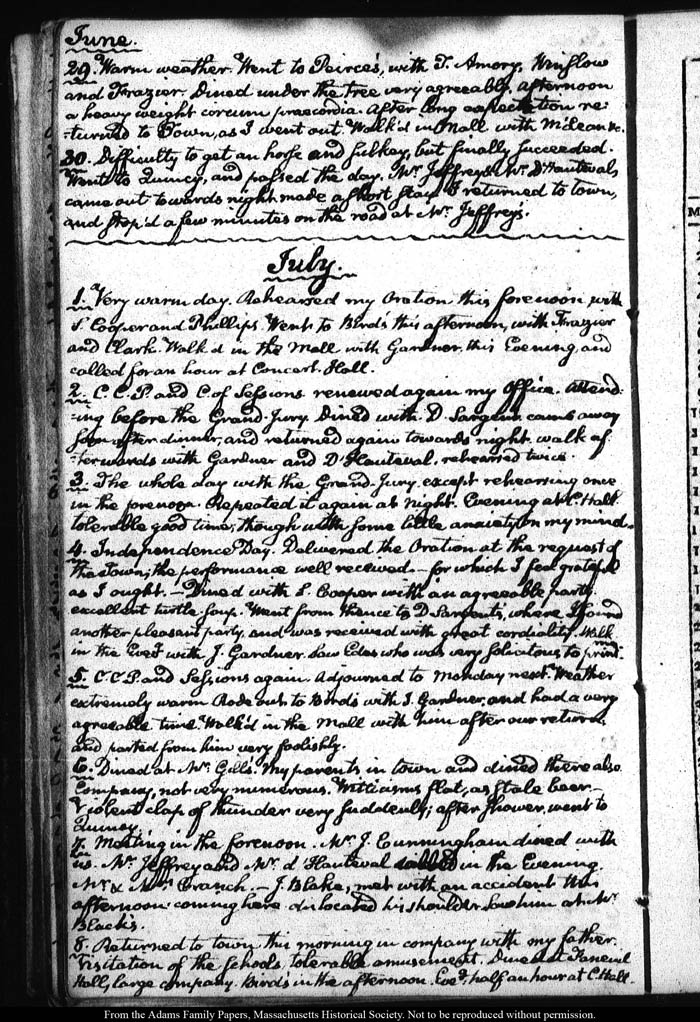 June.
29. Warm weather. Went to Peirce's, with T. Amory, Winslow
and Frazier. Dined under the tree very agreeably. Afternoon
a heavy weight circum præcordia. After long expectation re-
-turned to Town, as I went out. Walk'd in Mall with McLean &c.
30. Difficulty to get an horse and sulkey, but finally succeeded.
Went to Quincy, and passed the day. Mr. Jeffrey & Mr. D'Hauteval,
came out towards night made a short stay. I returned to town,
and stop'd a few minutes on the road at Mr. Jeffrey's.
July.
1. Very warm day. Rehearsed my Oration this forenoon with
S. Cooper and Phillips. Went to Bird's this afternoon, with Frazier
and Clark. Walk'd in the Mall with Gardner this Evening, and
called for an hour at Concert Hall.
2. C. C. P. and C. of Sessions renewed again my Office. Attend-
-ing before the Grand Jury. Dined with D. Sargent. came away
soon after dinner, and returned again towards night. walk af-
-terwards with Gardner and D'Hauteval. rehearsed twice.
3. The whole day with the Grand-Jury. except rehearsing once
in the forenoon. Repeated it again at night. Evening at C. Hall
tolerable good time, though with some little anxiety on my mind.
4. Independence Day. Delivered the Oration at the request of
the Town; the performance well received.—for which I feel grateful
as I ought.—Dined with S. Cooper with an agreeable party.
excellent turtle soup. Went from thence to D Sargents, where I found
another pleasant party, and was received with great cordiality. Walk
in the Eveg. with J. Gardner. Saw Edes who was very solicitous to print.
5. C. C. P. and Sessions again. Adjourned to Monday next. Weather
extremely warm Rode out to Bird's with J. Gardner, and had a very
agreeable time. Walk'd in the Mall with him after our return,
and parted from him very foolishly.
6. Dined at Mr. Gill's. My parents in town and dined there also.
Company, not very numerous. Witticisms flat, as stale beer.—
Violent clap of thunder very suddenly; after shower, went to
Quincy.
7. Meeting in the forenoon. Mr. J. Cunningham dined with
us. Mr. Jeffrey and Mr. d'Hauteval called in the Evening.
Mr. & Mrs. Cranch.—J. Blake, met with an accident this
afternoon coming here. dislocated his shoulder. Saw him at Mr.
Black's.
8. Returned to town this morning in company with my father.
Visitation of the schools, tolerable amusement. Dined at Faneuil
Hall, large company. Bird's in the afternoon. Eveg. half an hour at C. Hall.
From the Adams Family Papers, Massachusetts Historical Society. Not to be reproduced without permission.